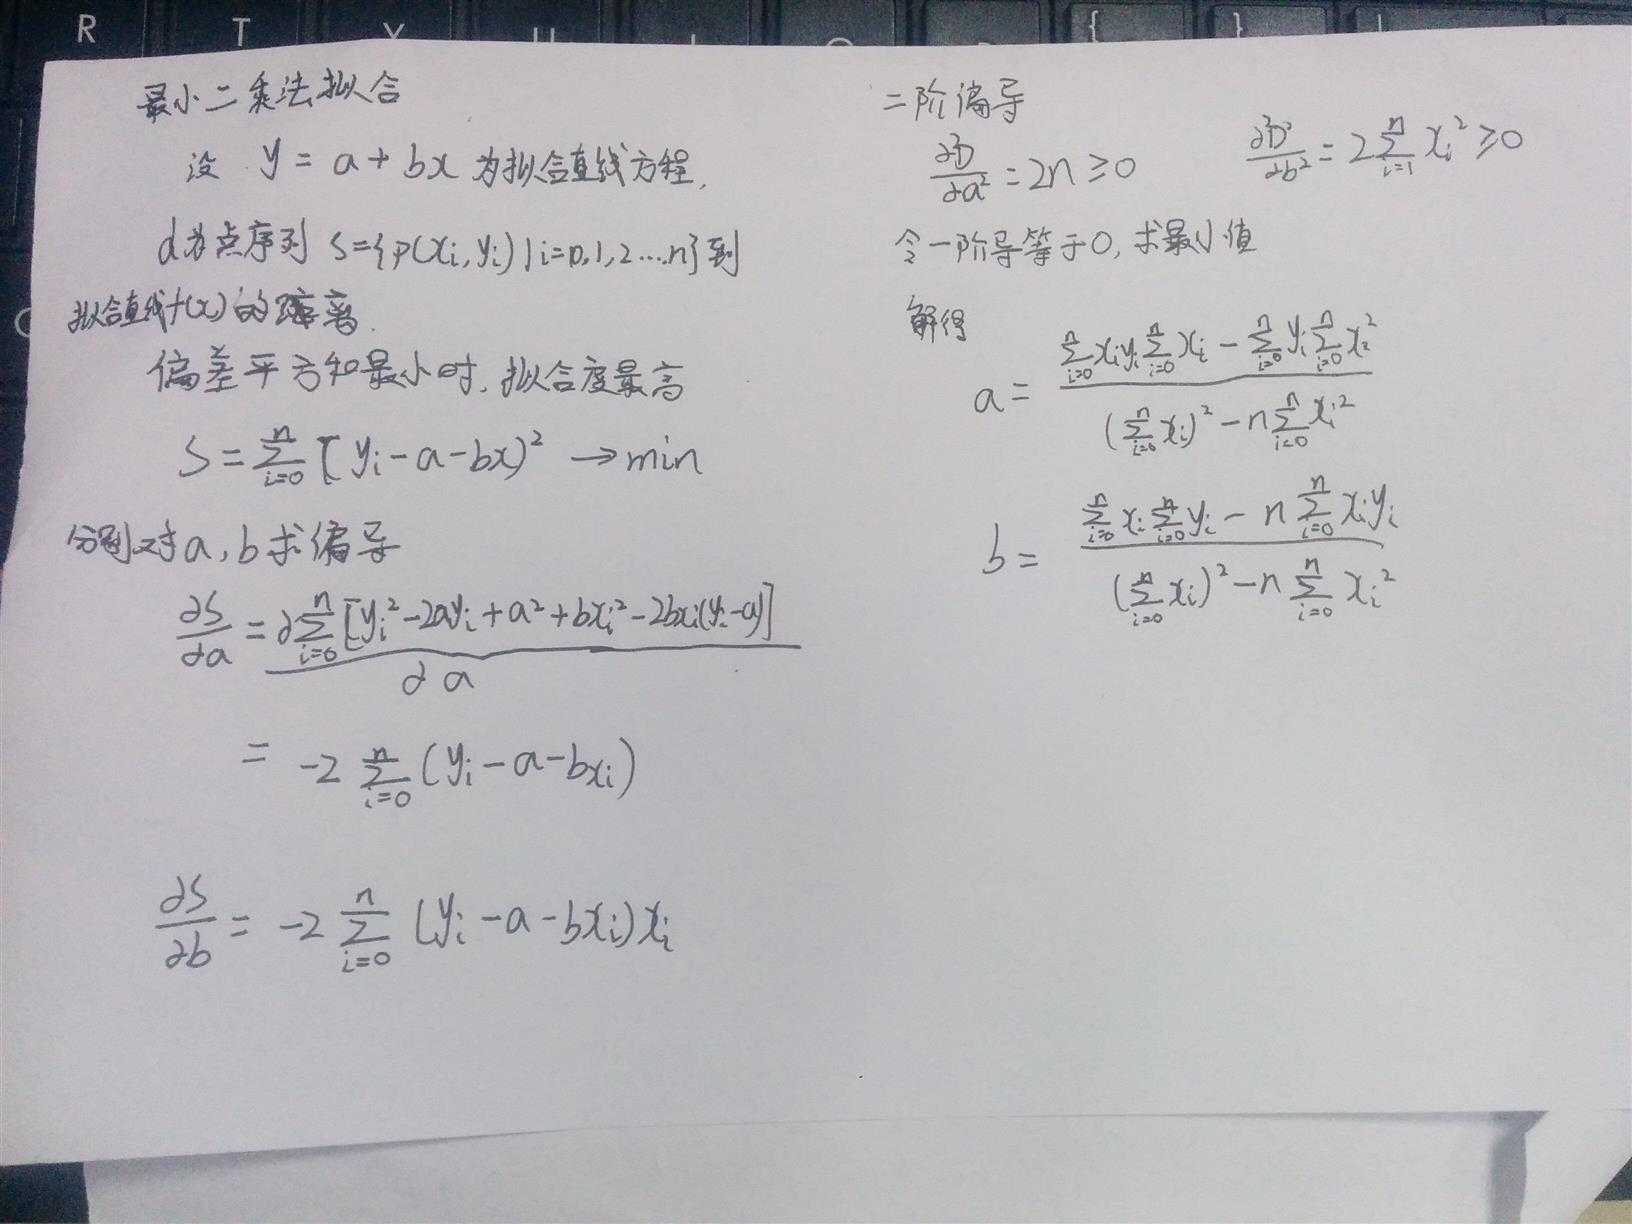 R T Y U I O P { } |
最小二乘法拟合
设 y = a + bx 为拟合直线方程,
d为点序列 S={P(xi, yi) | i=0,1,2....n}到
拟合直线f(x)的距离.
偏差平方和最小时,拟合度最高
S = ∑_{i=0}^{n} [yi - a - bx)² → min
分别对a, b求偏导
∂S/∂a = ∂∑_{i=0}^{n} [yi² - 2ayi + a² + bxi² - 2bxi(yi - a)] / ∂a
= -2 ∑_{i=0}^{n} (yi - a - bxi)
∂S/∂b = -2 ∑_{i=0}^{n} (yi - a - bxi)xi
二阶偏导
∂D/∂a² = 2n ≥ 0   ∂²D²/∂b² = 2∑_{i=1}^{n} xi² ≥ 0
令一阶导等于0,求最小值
解得
a = (∑_{i=0}^{n} xiyi ∑_{i=0}^{n} xi - ∑_{i=0}^{n} yi ∑_{i=0}^{n} xi²) / ((∑_{i=0}^{n} xi)² - n∑_{i=0}^{n} xi²)
b = (∑_{i=0}^{n} xi ∑_{i=0}^{n} yi - n ∑_{i=0}^{n} xiyi) / ((∑_{i=0}^{n} xi)² - n ∑_{i=0}^{n} xi²)